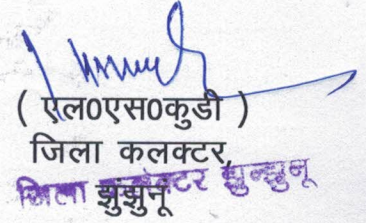 ( एल0एस0कुडी )
जिला कलक्टर,
झुंझुनू
जिला कलेक्टर झुन्झुनू